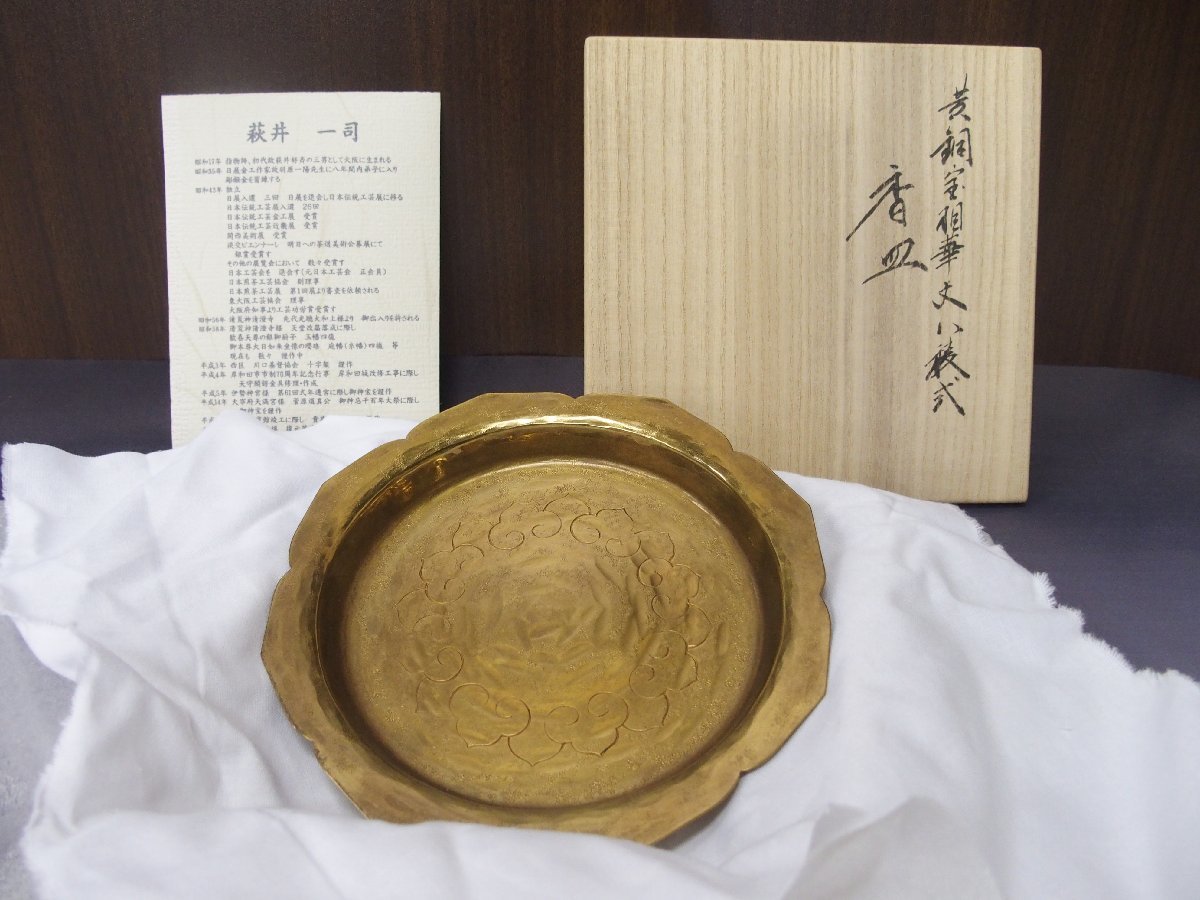 萩井 一司
昭和17年 指物師、初代故萩井好斉の三男として大阪に生まれる
昭和35年 日展金工作家故羽原一陽先生に八年間内弟子に入り
彫鍛金を習練する
昭和43年 独立
日展入選 三回 日展を退会し日本伝統工芸展に移る
日本伝統工芸展入選 25回
日本伝統工芸金工展 受賞
日本伝統工芸近畿展 受賞
関西美術展 受賞
淡交ビエンナーレ 明日への茶道美術公募展にて
銀賞受賞す
その他の展覧会において 数々受賞す
日本工芸会を 退会す(元日本工芸会 正会員)
日本煎茶工芸協会 副理事
日本煎茶工芸展 第1回展より審査を依頼される
東大阪工芸協会 理事
大阪府知事より工芸功労賞受賞す
昭和56年 清荒神清澄寺 先代光聰大和上様より 御出入りを許される
昭和58年 清荒神清澄寺様 天堂改築落成に際し
歓喜天尊の銀御厨子 玉幡四旒
御本尊大日如来坐像の瓔珞 庭幡(糸幡)四旒 等
現在も 数々 謹作中
平成3年 西区 川口基督協会 十字架 謹作
平成4年 岸和田市市制70周年記念行事 岸和田城改修工事に際し
天守閣錺金具修理・作成
平成5年 伊勢神宮様 第61回式年遷宮に際し御神宝を謹作
平成14年 太宰府天満宮様 菅原道真公 御神忌千百年大祭に際し
御神宝を謹作
黄銅宝相華文八稜式
香皿